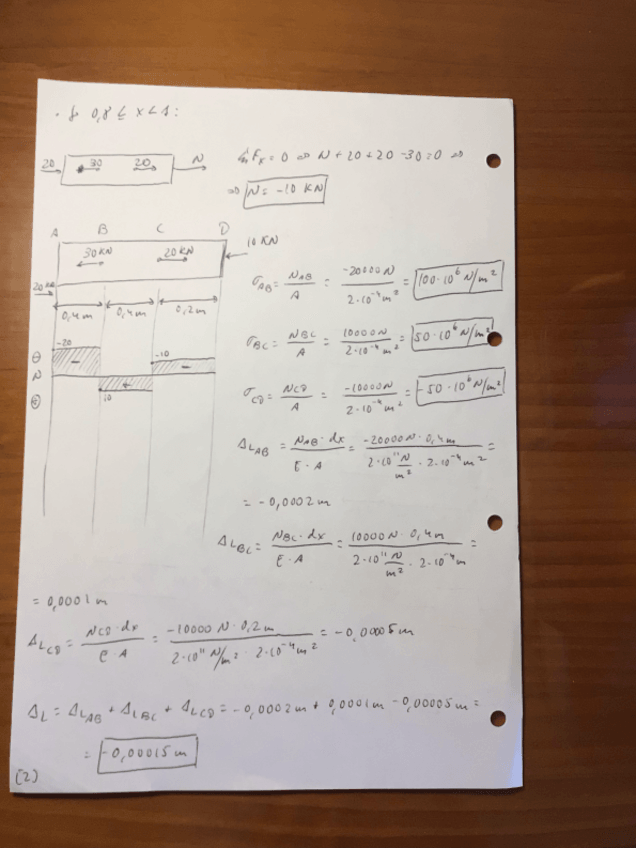 • fo 0,8 ≤ x < 1:
20 30 20 N
ΣFx = 0 ⇔ N + 20 + 20 - 30 = 0 ⇔
⇒ N = -10 KN
A B C D
30KN 20KN 10 KN
20KN
0,4m 0,4m 0,2m
σAB = NAB / A = -20000N / 2·10⁻⁴m² = 100·10⁶ N/m²
-20 -10
⊖ - -
N
⊕ + 10
σBC = NBC / A = 10000N / 2·10⁻⁴m² = 50·10⁶ N/m²
σCD = NCD / A = -10000N / 2·10⁻⁴m² = -50·10⁶ N/m²
ΔLAB = NAB·dx / E·A = -20000N·0,4m / 2·10¹¹ N/m² · 2·10⁻⁴m² =
= -0,0002m
ΔLBC = NBC·dx / E·A = 10000N·0,4m / 2·10¹¹ N/m² · 2·10⁻⁴m =
= 0,0001m
ΔLCD = NCD·dx / E·A = -10000N·0,2m / 2·10¹¹ N/m² · 2·10⁻⁴m² = -0,00005m
ΔL = ΔLAB + ΔLBC + ΔLCD = -0,0002m + 0,0001m - 0,00005m =
= -0,00015m
(2)